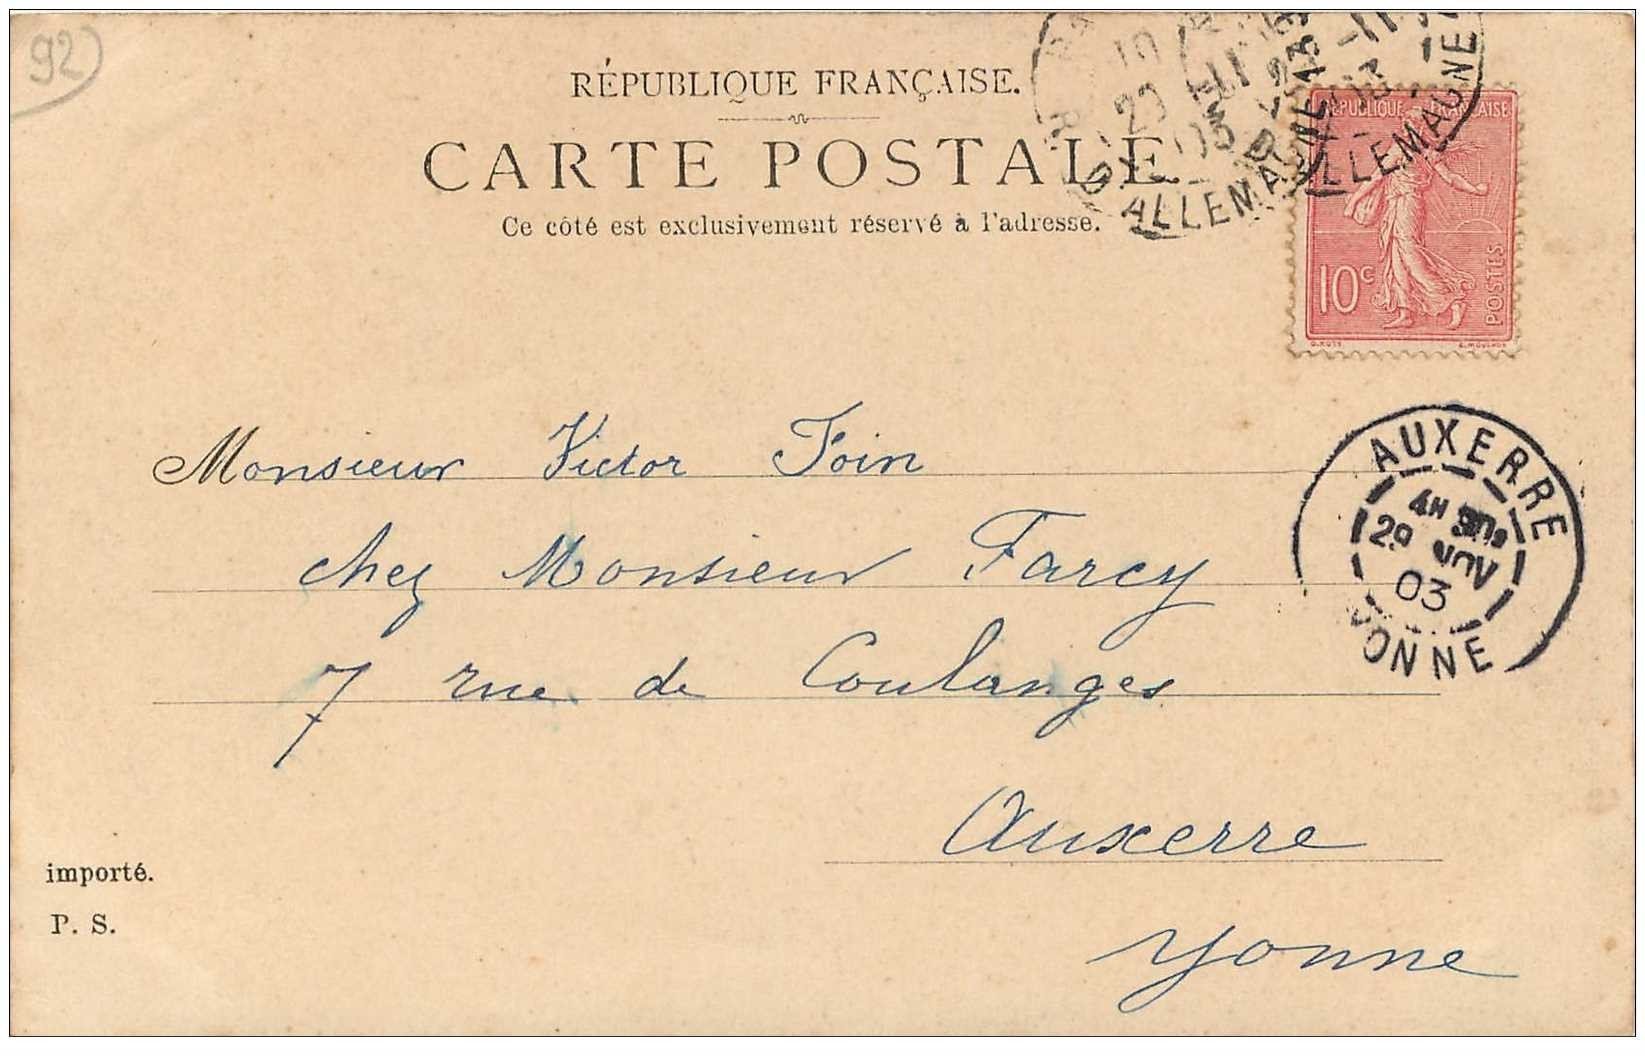 92
RÉPUBLIQUE FRANÇAISE.
CARTE POSTALE
Ce côté est exclusivement réservé à l'adresse.
R. D'ALLEMAGNE
ALLEMAGNE
RÉPUBLIQUE FRANÇAISE
10c
POSTES
O. ROTY
E. MOUCHON
AUXERRE
4H
29 NOV
03
YONNE
Monsieur Victor Foin
chez Monsieur Farcy
7 rue de Coulanges
Auxerre
Yonne
importé.
P. S.